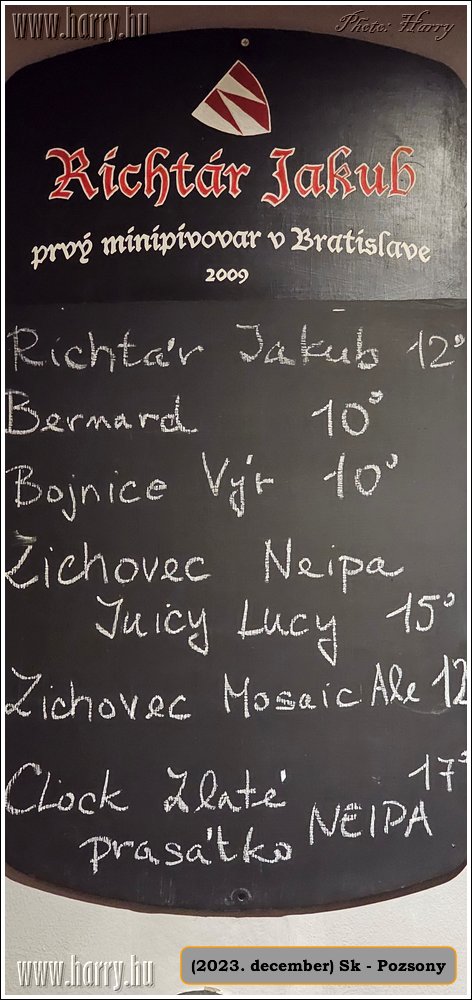 www.harry.hu
Photo: Harry
Richtár Jakub
prvý minipivovar v Bratislave
2009
Richtár Jakub 12°
Bernard 10°
Bojnice Výr 10°
Zichovec Neipa
Juicy Lucy 15°
Zichovec Mosaic Ale 12
Clock Zlaté 17°
prasátko NEIPA
www.harry.hu
(2023. december) Sk - Pozsony